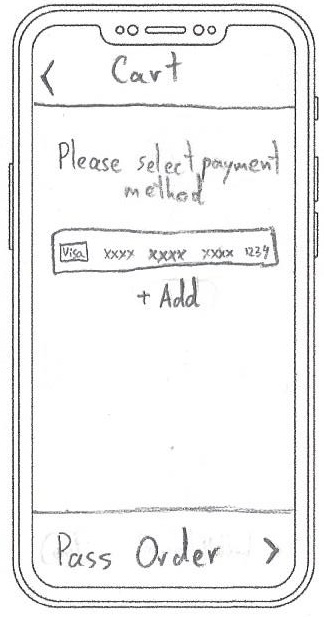 < Cart
Please select payment
method
Visa xxxx xxxx xxxx 1234
+ Add
Pass Order >